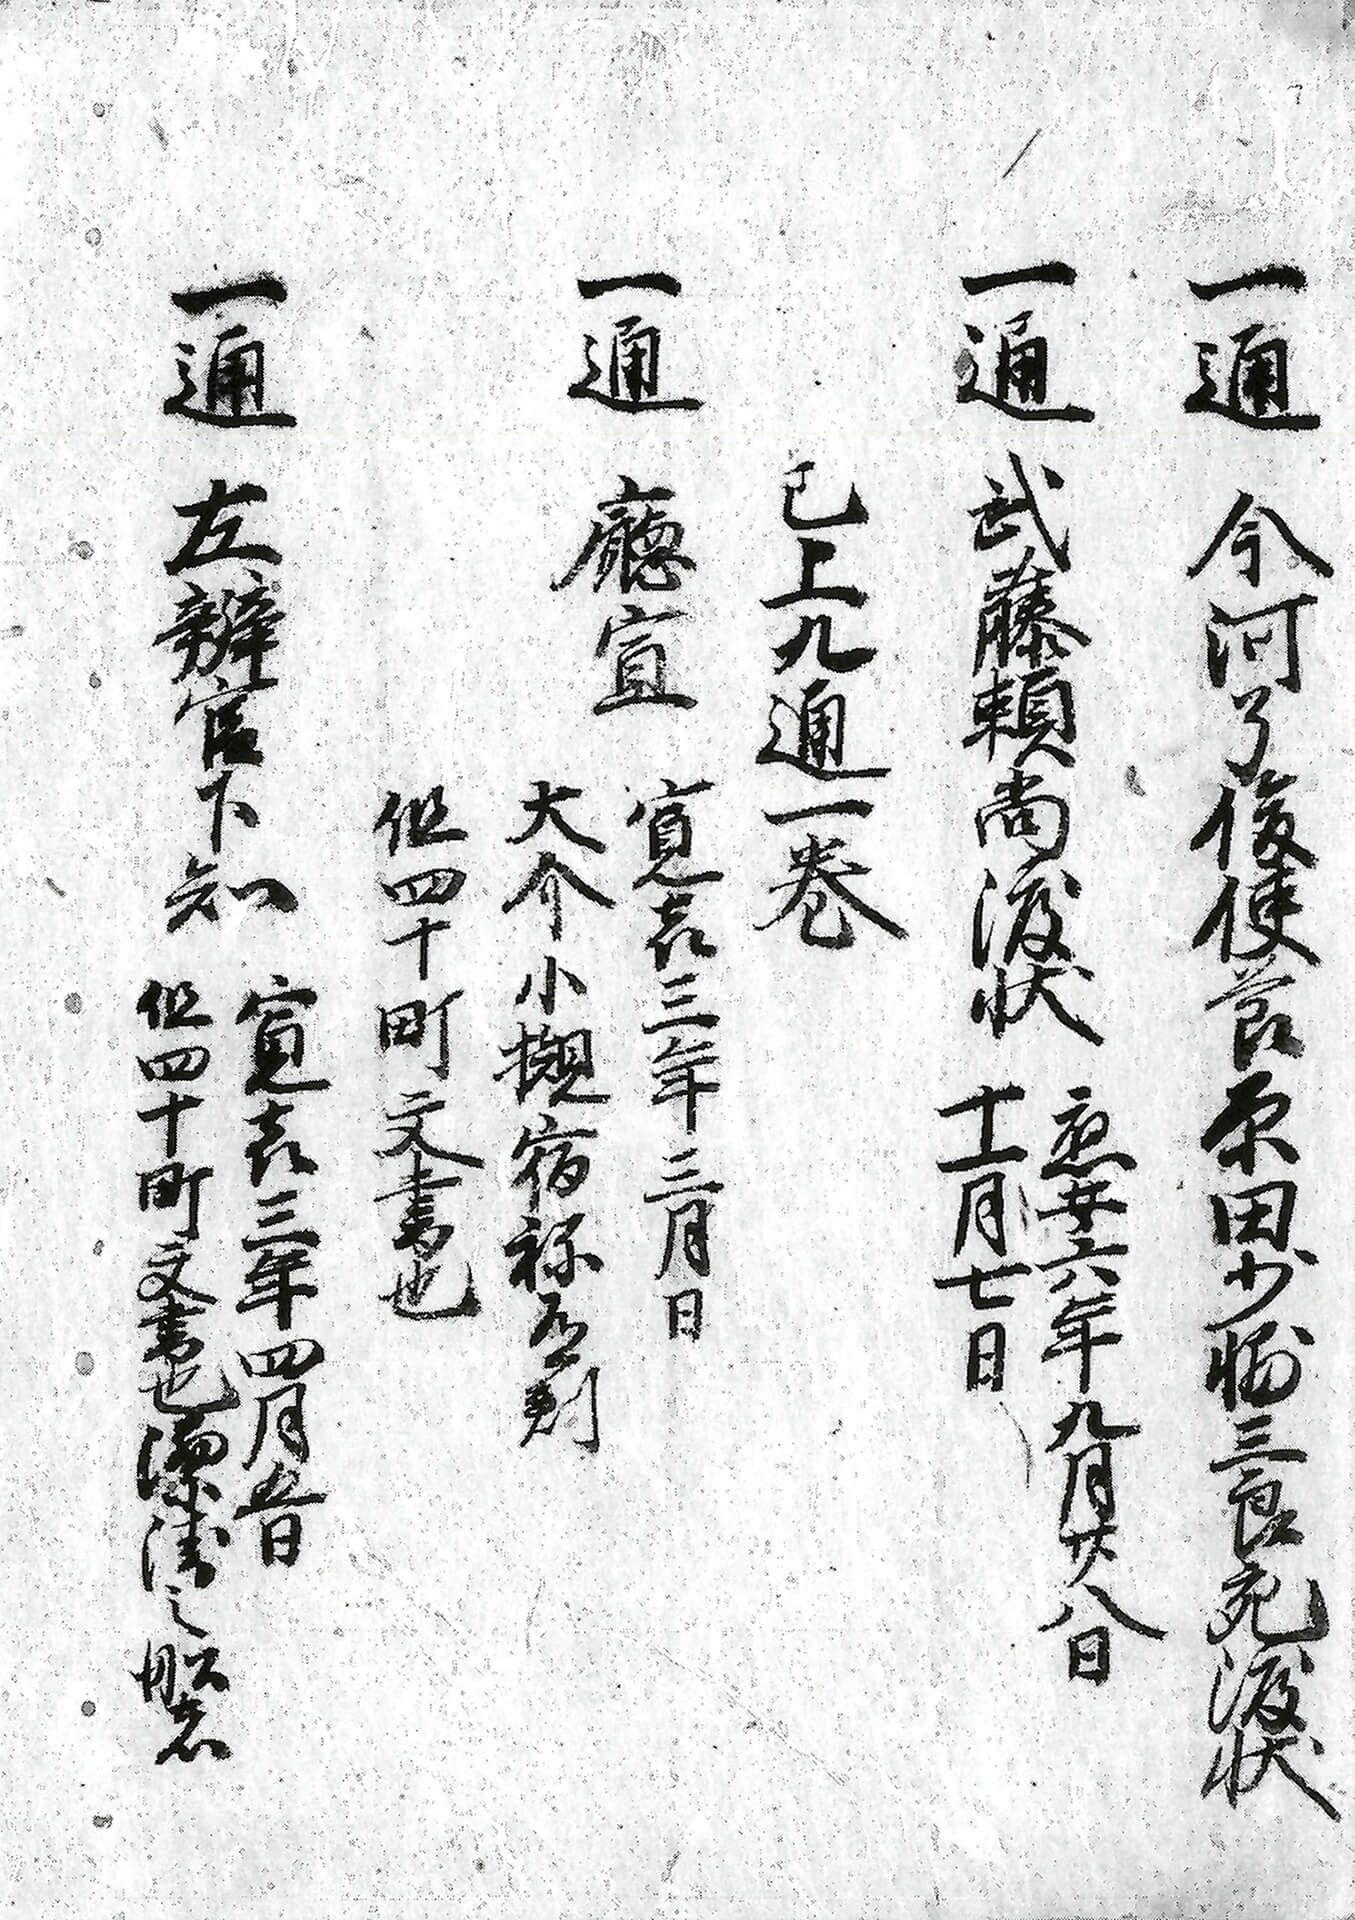 一通 今河了俊使節原田少輔三良宛渡状
一通 武藤頼尚渡状 應安六年九月廿八日
十一月七日
已上九通一卷
一通 廳宣 寛喜三年三月日
大介小槻宿祢在判
但四十町文書也
一通 左辨官下知 寛喜三年四月五日
但四十町文書也